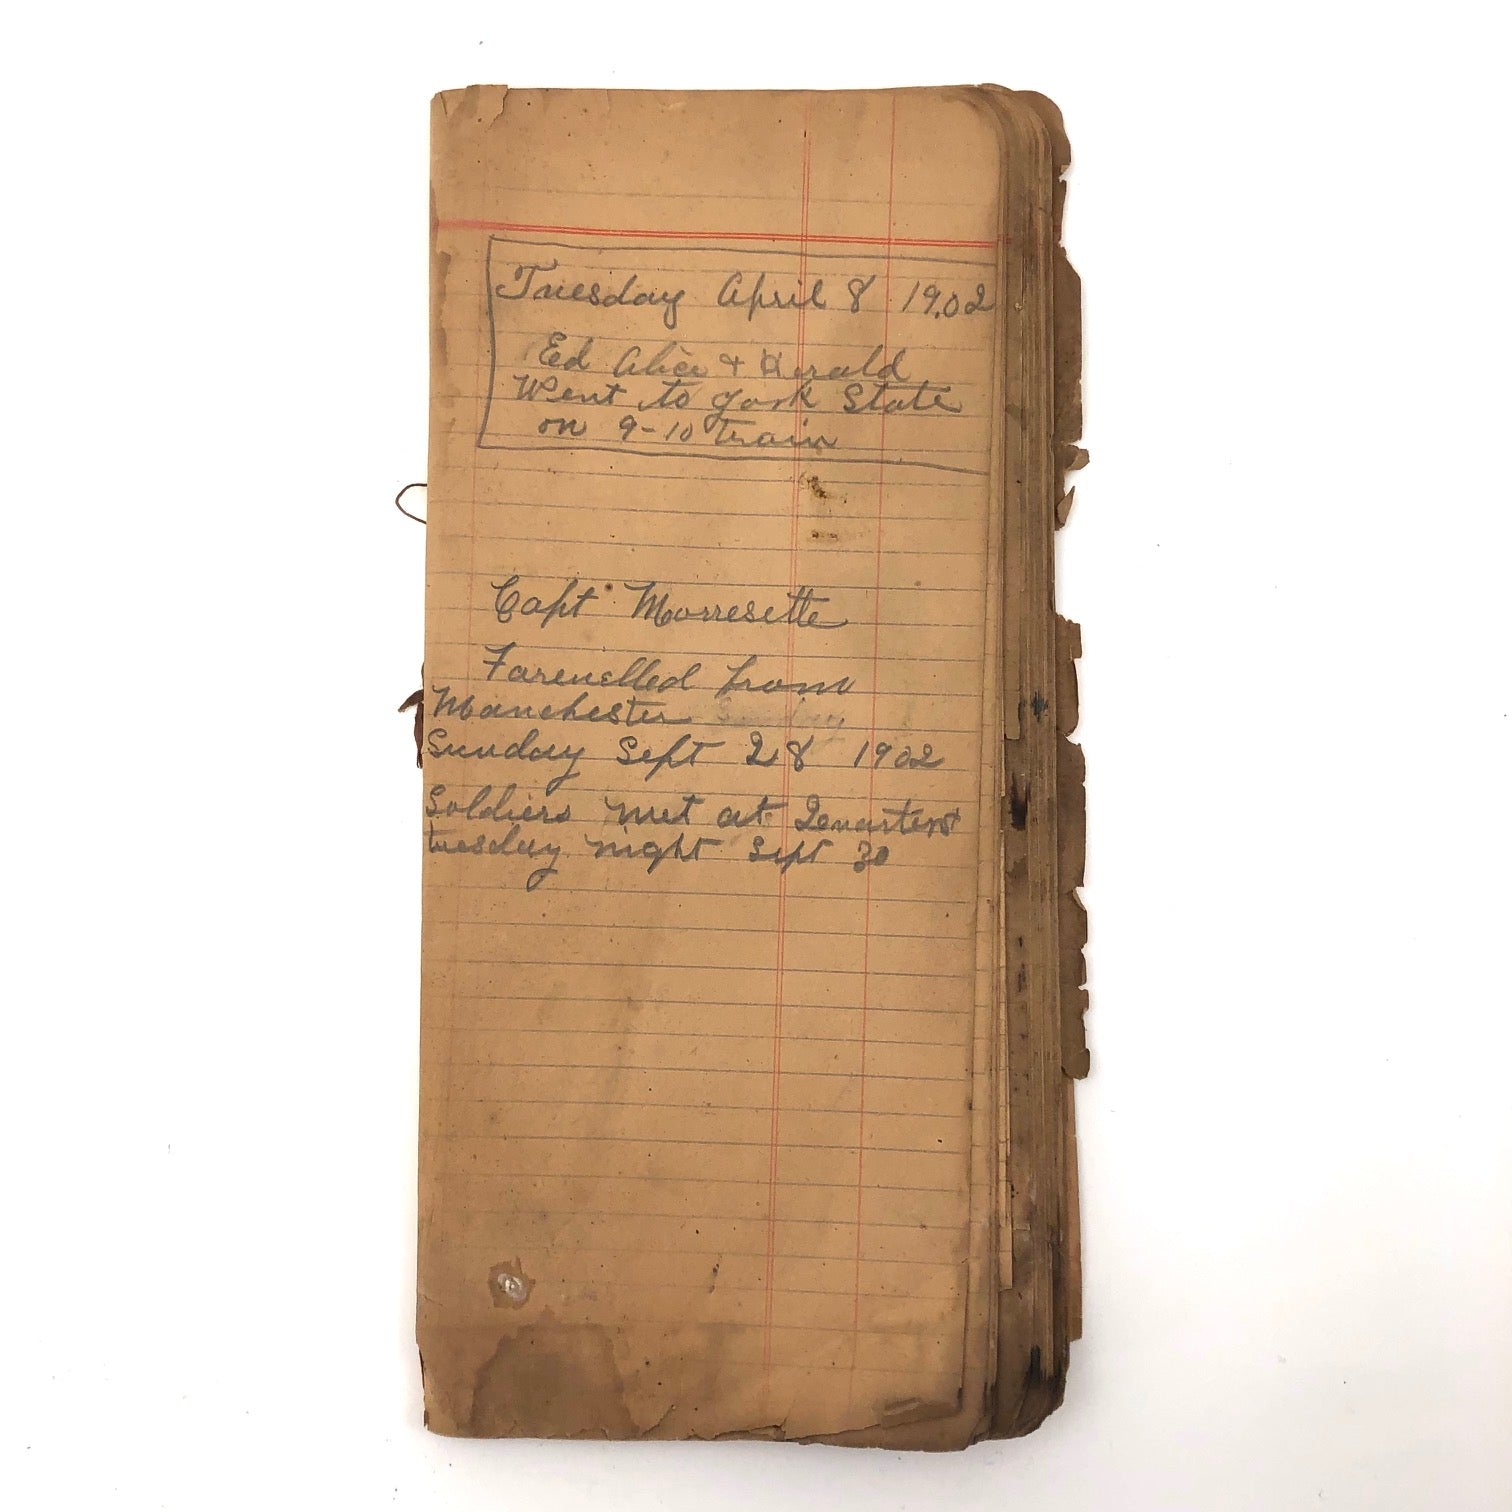 Tuesday April 8 19.02
Ed Alice & Herald
Went to York State
on 9-10 train
Capt Morresette
Farewelled from
Manchester Sunday
Sunday Sept 28 1902
Soldiers met at Quarters
tuesday night Sept 30